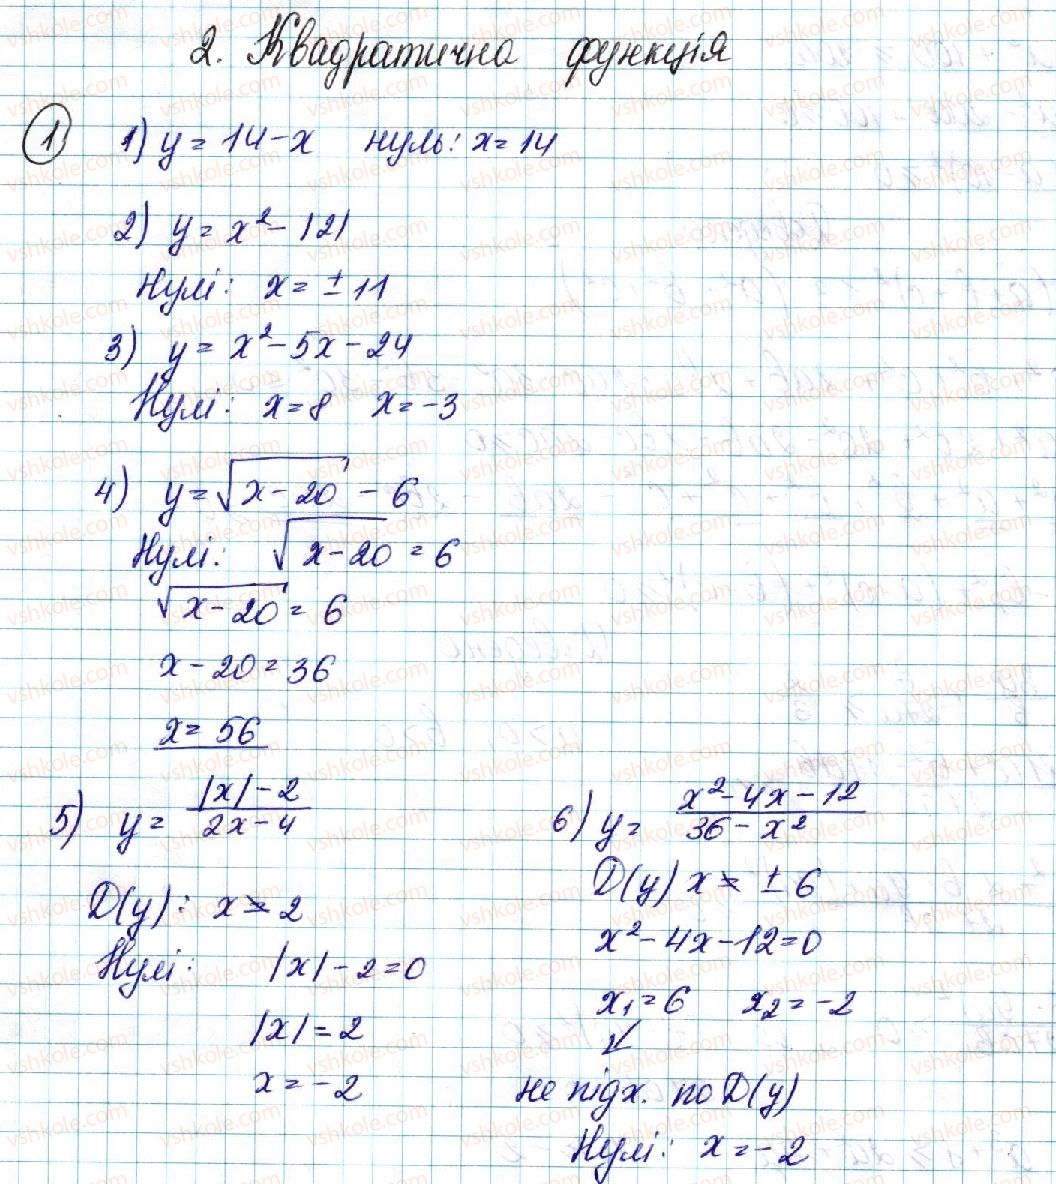 2. Квадратична функція
1) 1) y = 14 - x нуль: x = 14
2) y = x² - 121
Нулі: x = ± 11
3) y = x² - 5x - 24
Нулі: x = 8 x = -3
4) y = √(x - 20) - 6
Нулі: √(x - 20) = 6
√(x - 20) = 6
x - 20 = 36
x = 56
5) y = (|x| - 2)/(2x - 4)
D(y): x ≠ 2
Нулі: |x| - 2 = 0
|x| = 2
x = -2
6) y = (x² - 4x - 12)/(36 - x²)
D(y) x ≠ ± 6
x² - 4x - 12 = 0
x₁ = 6 x₂ = -2
↙
не підх. по D(y)
Нулі: x = -2